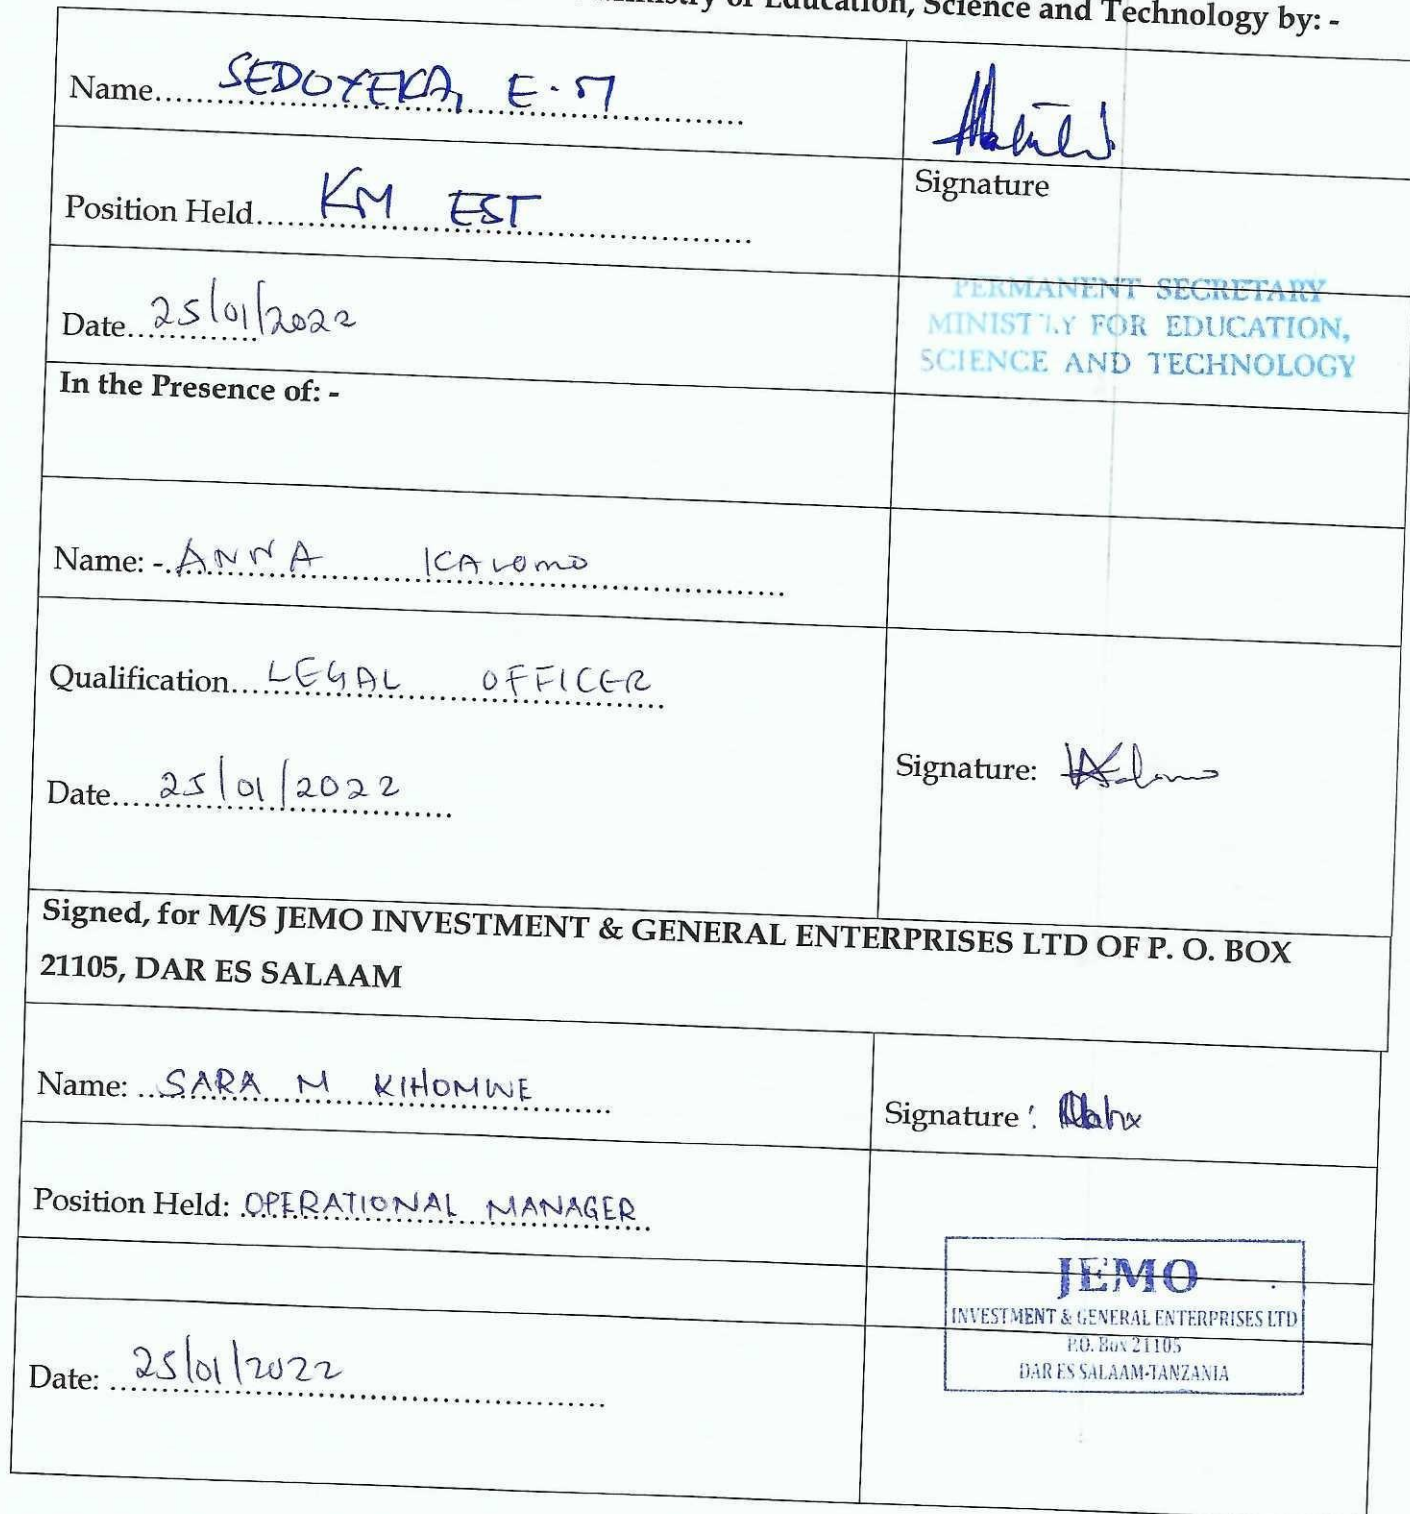 of Education, Science and Technology by: -
Name.....SEDOYEKA, E.M
Signature
Position Held.....KM EST
PERMANENT SECRETARY
MINISTRY FOR EDUCATION,
SCIENCE AND TECHNOLOGY
Date...25/01/2022
In the Presence of: -
Name: -.ANNA KALOMO
Qualification....LEGAL OFFICER
Signature:
Date.....25/01/2022
Signed, for M/S JEMO INVESTMENT & GENERAL ENTERPRISES LTD OF P. O. BOX
21105, DAR ES SALAAM
Name: ...SARA M KIHOMWE
Signature :
Position Held: OPERATIONAL MANAGER
JEMO
INVESTMENT & GENERAL ENTERPRISES LTD
P.O. Box 21105
DAR ES SALAAM-TANZANIA
Date: 25/01/2022